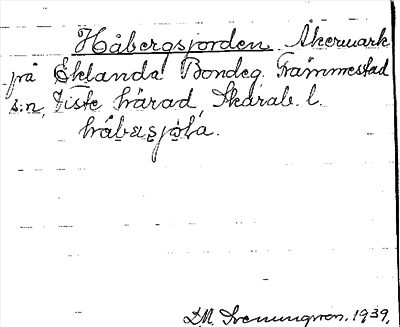 Håbergsjorden. Åkermark
på Eklanda Bondeg. Främmestad
s:n, Viste härad, Skarab. l.
D.M. 1939.